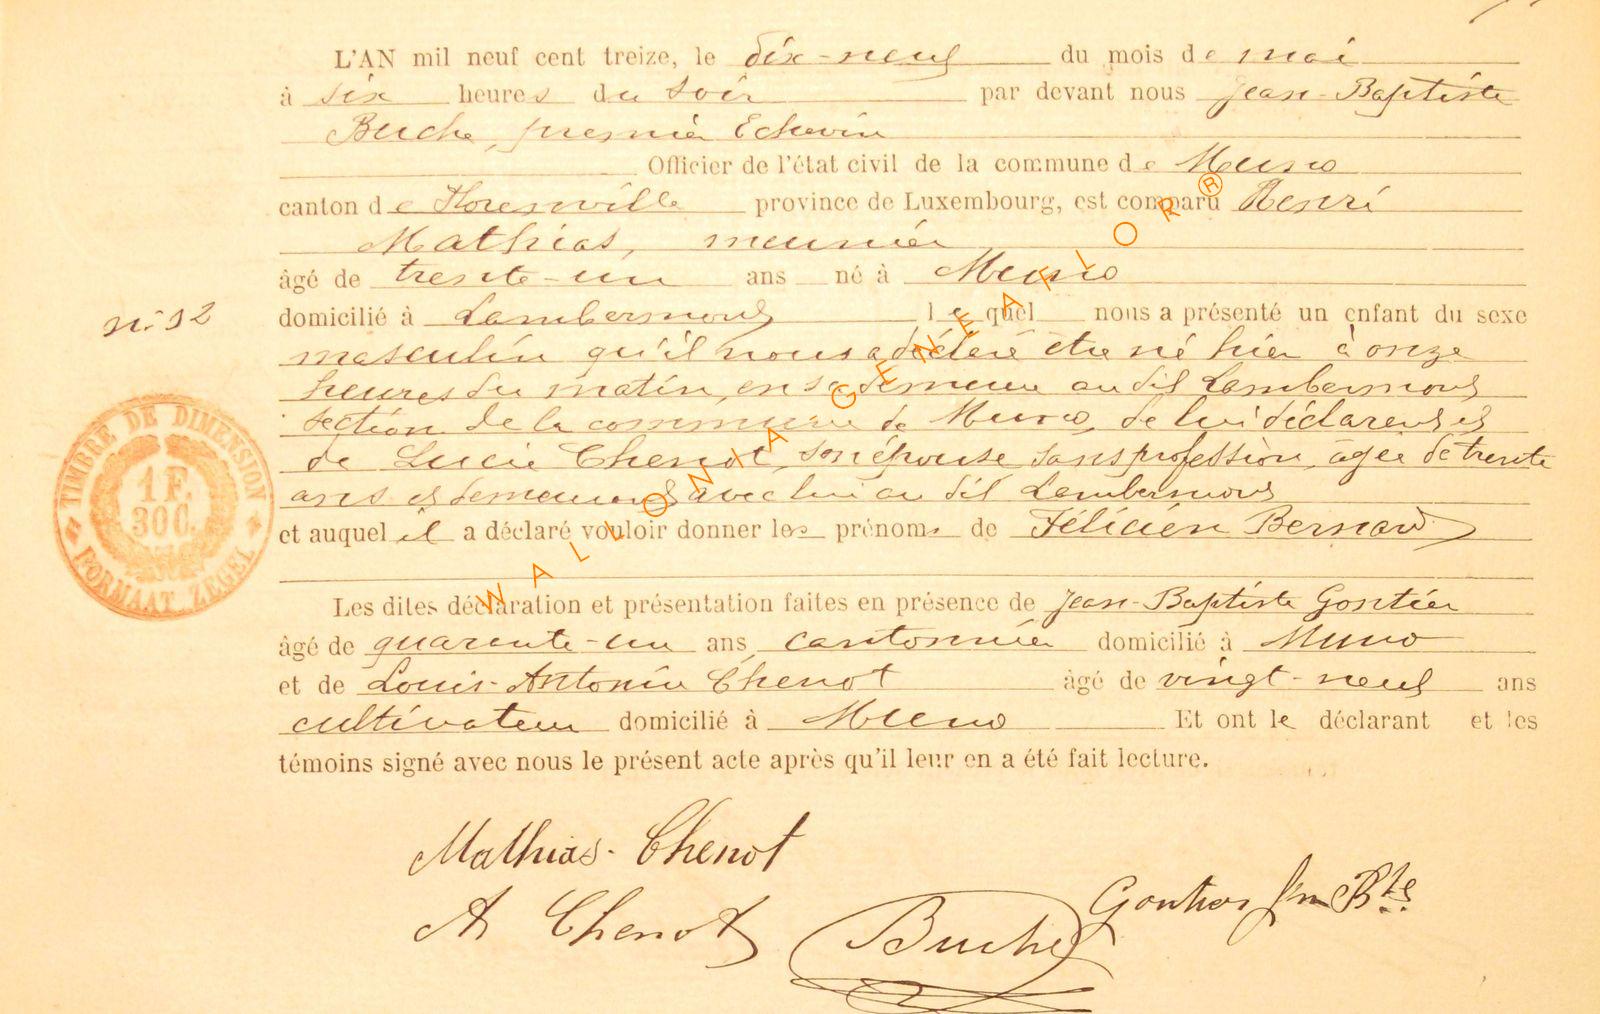 L'AN mil neuf cent treize, le dix-neuf du mois de mai
à six heures du soir par devant nous Jean-Baptiste
Buche, premier Echevin
Officier de l'état civil de la commune de Muno
canton de Florenville province de Luxembourg, est comparu Henri
Mathias, meunier
âgé de trente-un ans né à Muno
domicilié à Lambermont lequel nous a présenté un enfant du sexe
n° 12
masculin qu'il nous a déclaré être né hier à onze
heures du matin, en sa demeure au dit Lambermont
section de la commune de Muno, de lui déclarant et
de Lucie Chenot, son épouse sans profession, âgée de trente
ans et demeurant avec lui au dit Lambermont
et auquel il a déclaré vouloir donner les prénoms de Félicien Bernard
Les dites déclaration et présentation faites en présence de Jean-Baptiste Gontier
âgé de quarante-un ans, cantonnier domicilié à Muno
et de Louis-Antonin Chenot âgé de vingt-neuf ans
cultivateur domicilié à Muno Et ont le déclarant et les
témoins signé avec nous le présent acte après qu'il leur en a été fait lecture.
Mathias-Chenot
A Chenot Buche Jn Bte
TIMBRE DE DIMENSION
1 F.
30 C.
FORMAAT ZEGEL
WALLONIA GENEAFLOR®